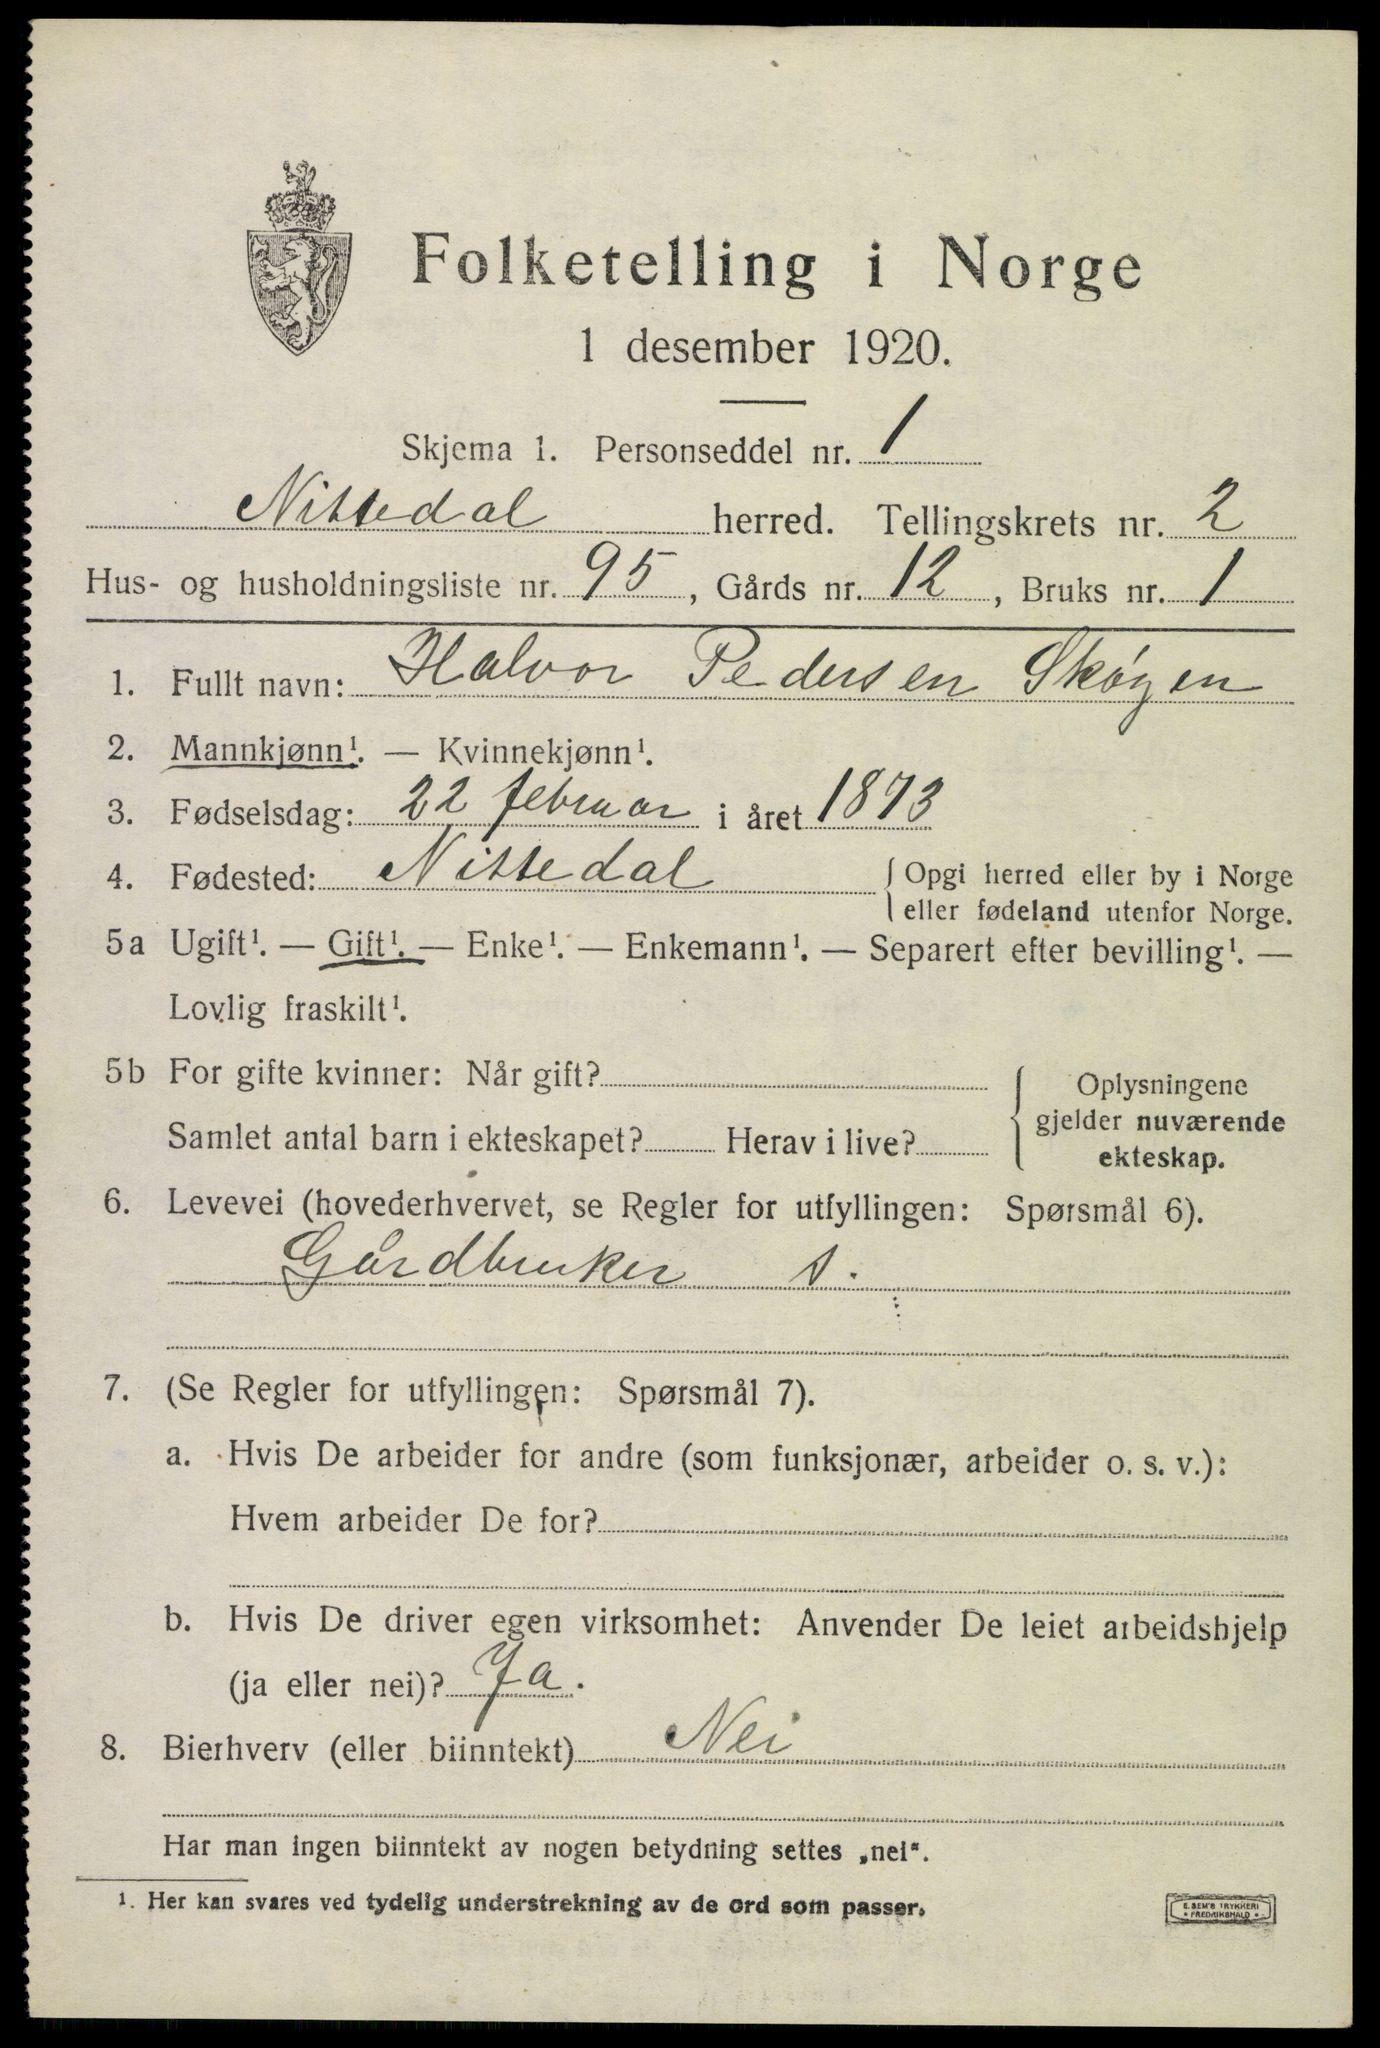 Folketelling i Norge
1 desember 1920.
Skjema 1. Personseddel nr. 1
Nittedal herred. Tellingskrets nr. 2
Hus- og husholdningsliste nr. 95, Gårds nr. 12, Bruks nr. 1
1. Fullt navn: Halvor Pedersen Skøyen
2. Mannkjønn¹. — Kvinnekjønn¹.
3. Fødselsdag: 22 februar i året 1873
4. Fødested: Nittedal { Opgi herred eller by i Norge
eller fødeland utenfor Norge.
5a Ugift¹. — Gift¹. — Enke¹. — Enkemann¹. — Separert efter bevilling¹. —
Lovlig fraskilt¹.
5b For gifte kvinner: Når gift?
Samlet antal barn i ekteskapet? Herav i live?
{ Oplysningene
gjelder nuværende
ekteskap.
6. Levevei (hovederhvervet, se Regler for utfyllingen: Spørsmål 6).
Gårdbruker s.
7. (Se Regler for utfyllingen: Spørsmål 7).
a. Hvis De arbeider for andre (som funksjonær, arbeider o. s. v.):
Hvem arbeider De for?
b. Hvis De driver egen virksomhet: Anvender De leiet arbeidshjelp
(ja eller nei)? Ja.
8. Bierhverv (eller biinntekt) Nei
Har man ingen biinntekt av nogen betydning settes „nei".
1. Her kan svares ved tydelig understrekning av de ord som passer.
E. SEM'S TRYKKERI
FREDRIKSHALD